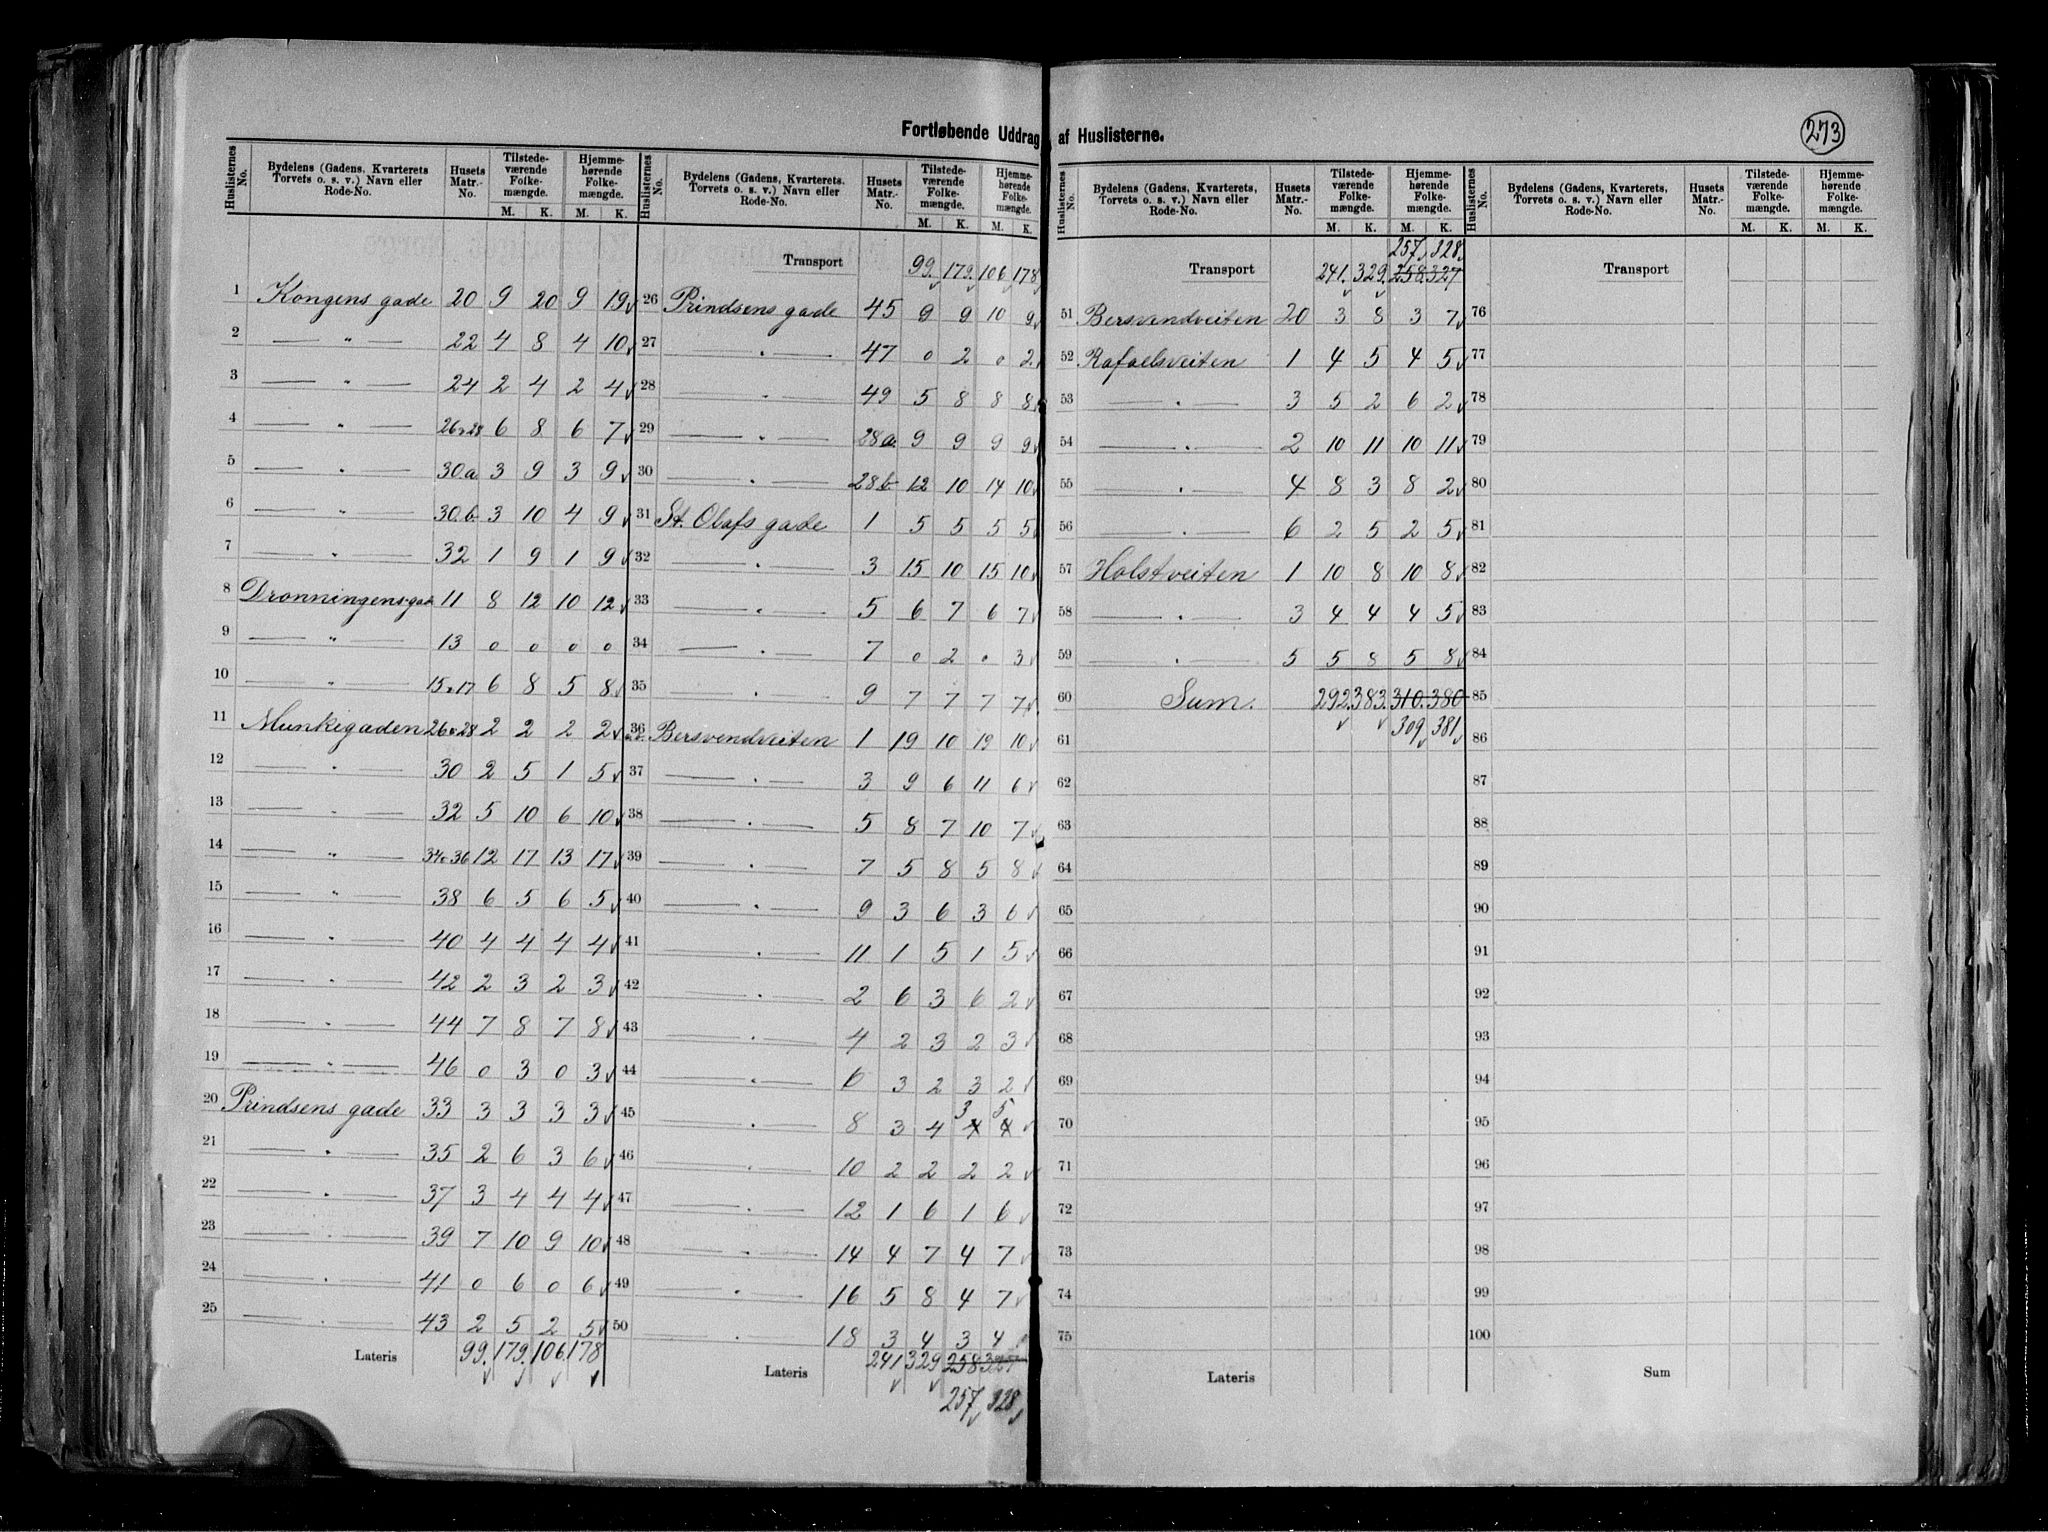 Fortløbende Uddrag af Huslisterne.
273
Huslisternes No. | Bydelens (Gadens, Kvarterets Torvets o. s. v.) Navn eller Rode-No. | Husets Matr.-No. | Tilstedeværende Folkemængde. M. K. | Hjemmehørende Folkemængde. M. K.
1 Kongens gade 20 9 20 9 19
2 — " — 22 4 8 4 10
3 — " — 24 2 4 2 4
4 — " — 26 & 28 6 8 6 7
5 — " — 30.a 3 9 3 9
6 — " — 30.b. 3 10 4 9
7 — " — 32 1 9 1 9
8 Dronningensgade 11 8 12 10 12
9 — " — 13 0 0 0 0
10 — " — 15 & 17 6 8 5 8
11 Munkegaden 26 & 28 2 2 2 2
12 — " — 30 2 5 1 5
13 — " — 32 5 10 6 10
14 — " — 34 & 36 12 17 13 17
15 — " — 38 6 5 6 5
16 — " — 40 4 4 4 4
17 — " — 42 2 3 2 3
18 — " — 44 7 8 7 8
19 — " — 46 0 3 0 3
20 Prindsens gade 33 3 3 3 3
21 — " — 35 2 6 3 6
22 — " — 37 3 4 4 4
23 — " — 39 7 10 9 10
24 — " — 41 0 6 0 6
25 — " — 43 2 5 2 5
Lateris 99. 179. 106. 178
Huslisternes No. | Bydelens (Gadens, Kvarterets. Torvets o. s. v.) Navn eller Rode-No. | Husets Matr.-No. | Tilstedeværende Folkemængde. M. K. | Hjemmehørende Folkemængde. M. K.
Transport 99. 179. 106. 178
26 Prindsens gade 45 9 9 10 9
27 — " — 47 0 2 0 2
28 — " — 49 5 8 8 8
29 — " — 28a. 9 9 9 9
30 — " — 28b 12 10 14 10
31 St. Olafs gade 1 5 5 5 5
32 — " — 3 15 10 15 10
33 — " — 5 6 7 6 7
34 — " — 7 0 2 0 3
35 — " — 9 7 7 7 7
36 Bersvendveiten 1 19 10 19 10
37 — " — 3 9 6 11 6
38 — " — 5 8 7 10 7
39 — " — 7 5 8 5 8
40 — " — 9 3 6 3 6
41 — " — 11 1 5 1 5
42 — " — 2 6 3 6 2
43 — " — 4 2 3 2 3
44 — " — 6 3 2 3 2
3 5
45 — " — 8 3 4 4 4
46 — " — 10 2 2 2 2
47 — " — 12 1 6 1 6
48 — " — 14 4 7 4 7
49 — " — 16 5 8 4 7
50 — " — 18 3 4 3 4
Lateris 241 329 258 327
257 328
Huslisternes No. | Bydelens (Gadens, Kvarterets, Torvets o. s. v.) Navn eller Rode-No. | Husets Matr.-No. | Tilstedeværende Folkemængde. M. K. | Hjemmehørende Folkemængde. M. K.
257 328
Transport 241. 329. 258. 327
51 Bersvendveiten 20 3 8 3 7
52 Rafaelsveiten 1 4 5 4 5
53 — " — 3 5 2 6 2
54 — " — 2 10 11 10 11
55 — " — 4 8 3 8 2
56 — " — 6 2 5 2 5
57 Holstveiten 1 10 8 10 8
58 — " — 3 4 4 4 5
59 — " — 5 5 8 5 8
60 Sum. 292. 383. 310. 380
309 381
61
62
63
64
65
66
67
68
69
70
71
72
73
74
75
Lateris
Huslisternes No. | Bydelens (Gadens, Kvarterets, Torvets o. s. v.) Navn eller Rode-No. | Husets Matr.-No. | Tilstedeværende Folkemængde. M. K. | Hjemmehørende Folkemængde. M. K.
Transport
76
77
78
79
80
81
82
83
84
85
86
87
88
89
90
91
92
93
94
95
96
97
98
99
100
Sum